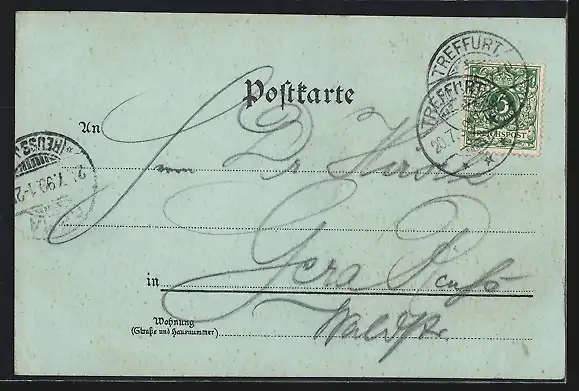 TREFFURT
Postkarte
TREFFURT
5
REICHSPOST
20.7.
An
Dr
(REUSS
7.99.1-2
Gera Reuß
in
Wohnung
(Straße und Hausnummer)
Waldstr.